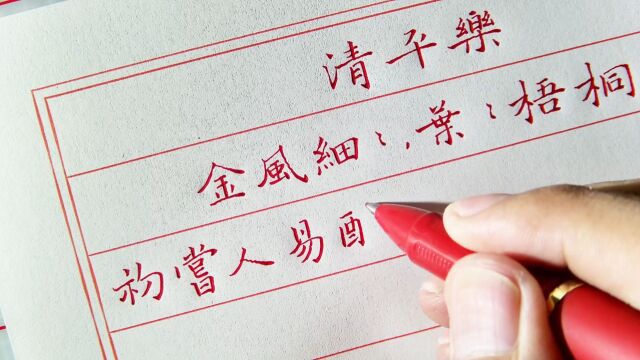 清平樂
金風細〻,葉〻梧桐
初嘗人易酉